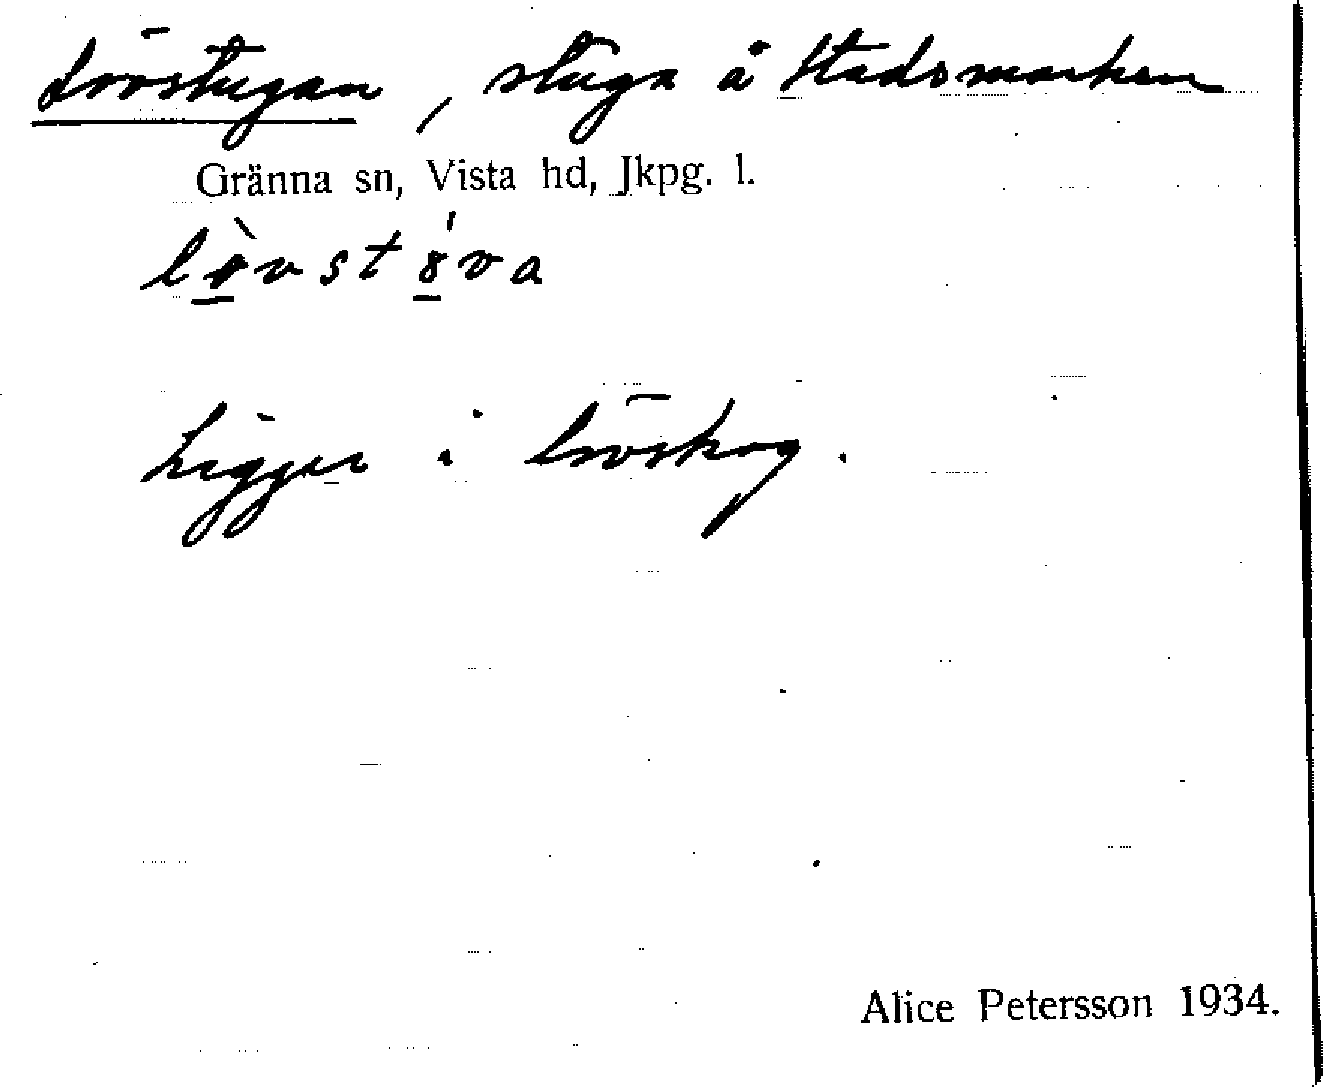 Lövstugan, stuga å Stadsmarken
Gränna sn, Vista hd, Jkpg. l.
lø̀vstó̤va
Ligger i lövskog.
Alice Petersson 1934.